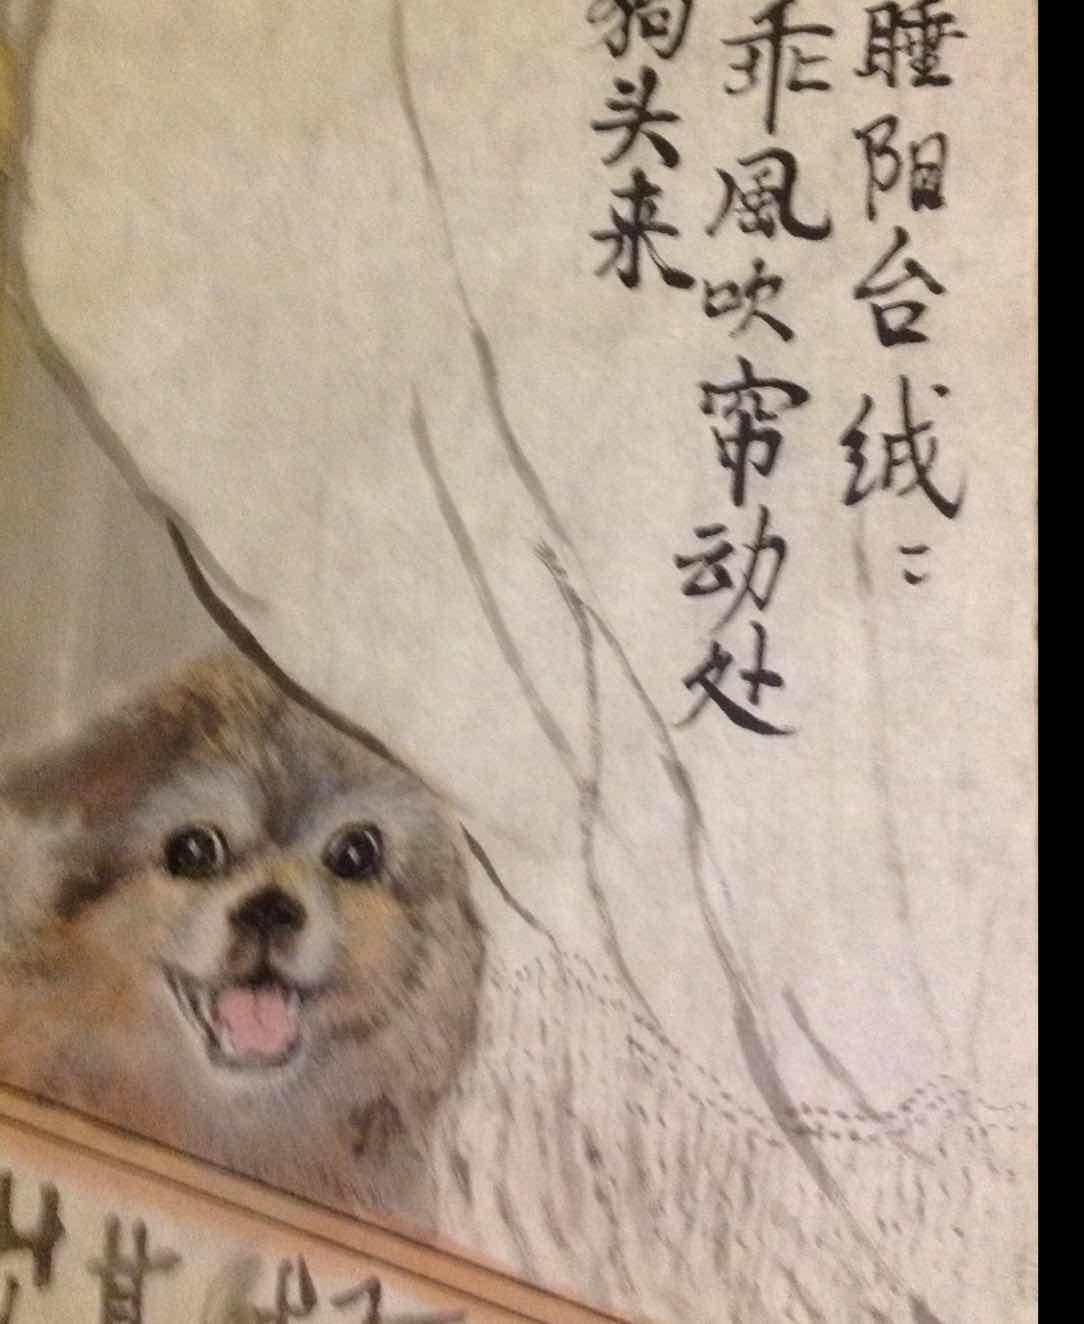 睡阳台绒〻
乖風吹帘动处
狗头来